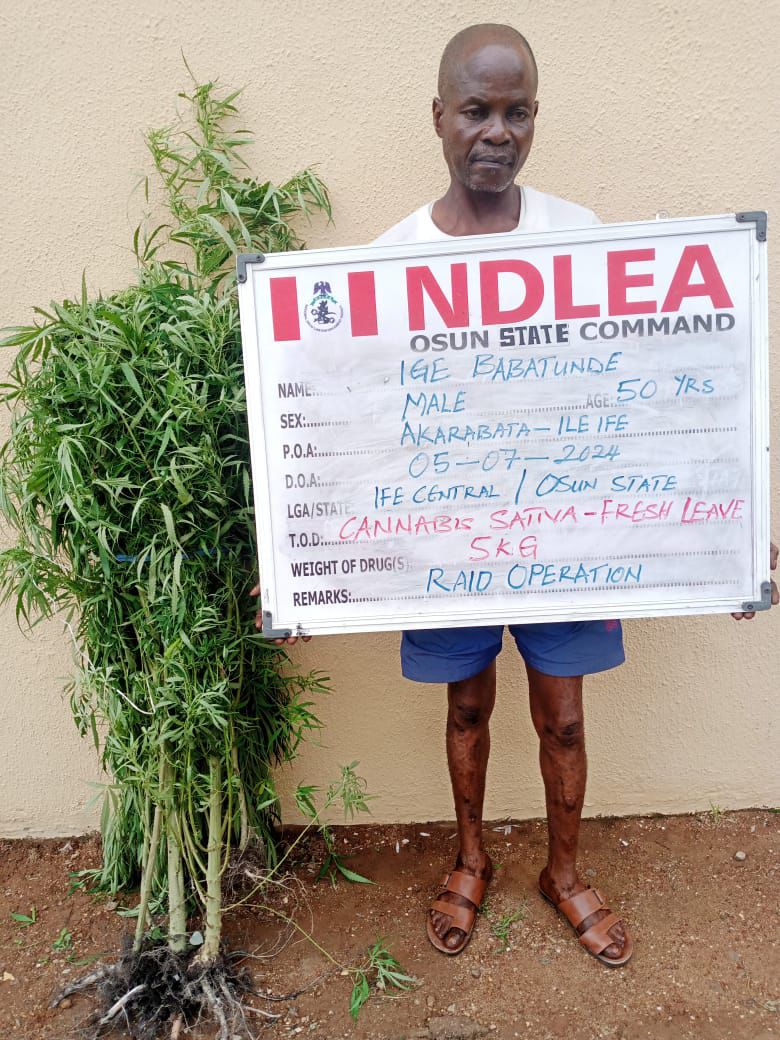 NDLEA
OSUN STATE COMMAND
NAME: IGE BABATUNDE
SEX: MALE AGE: 50 YRS
P.O.A: AKARABATA - ILE IFE
D.O.A: 05-07-2024
LGA/STATE: IFE CENTRAL / OSUN STATE
T.O.D: CANNABIS SATIVA - FRESH LEAVE
WEIGHT OF DRUG(S): 5KG
REMARKS: RAID OPERATION